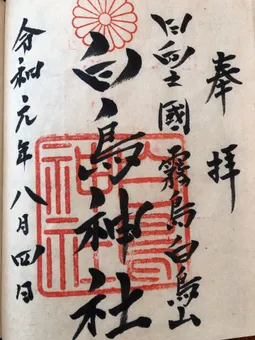 奉拝
日向國霧島白鳥山
白鳥神社
白鳥
神社
令和元年八月四日